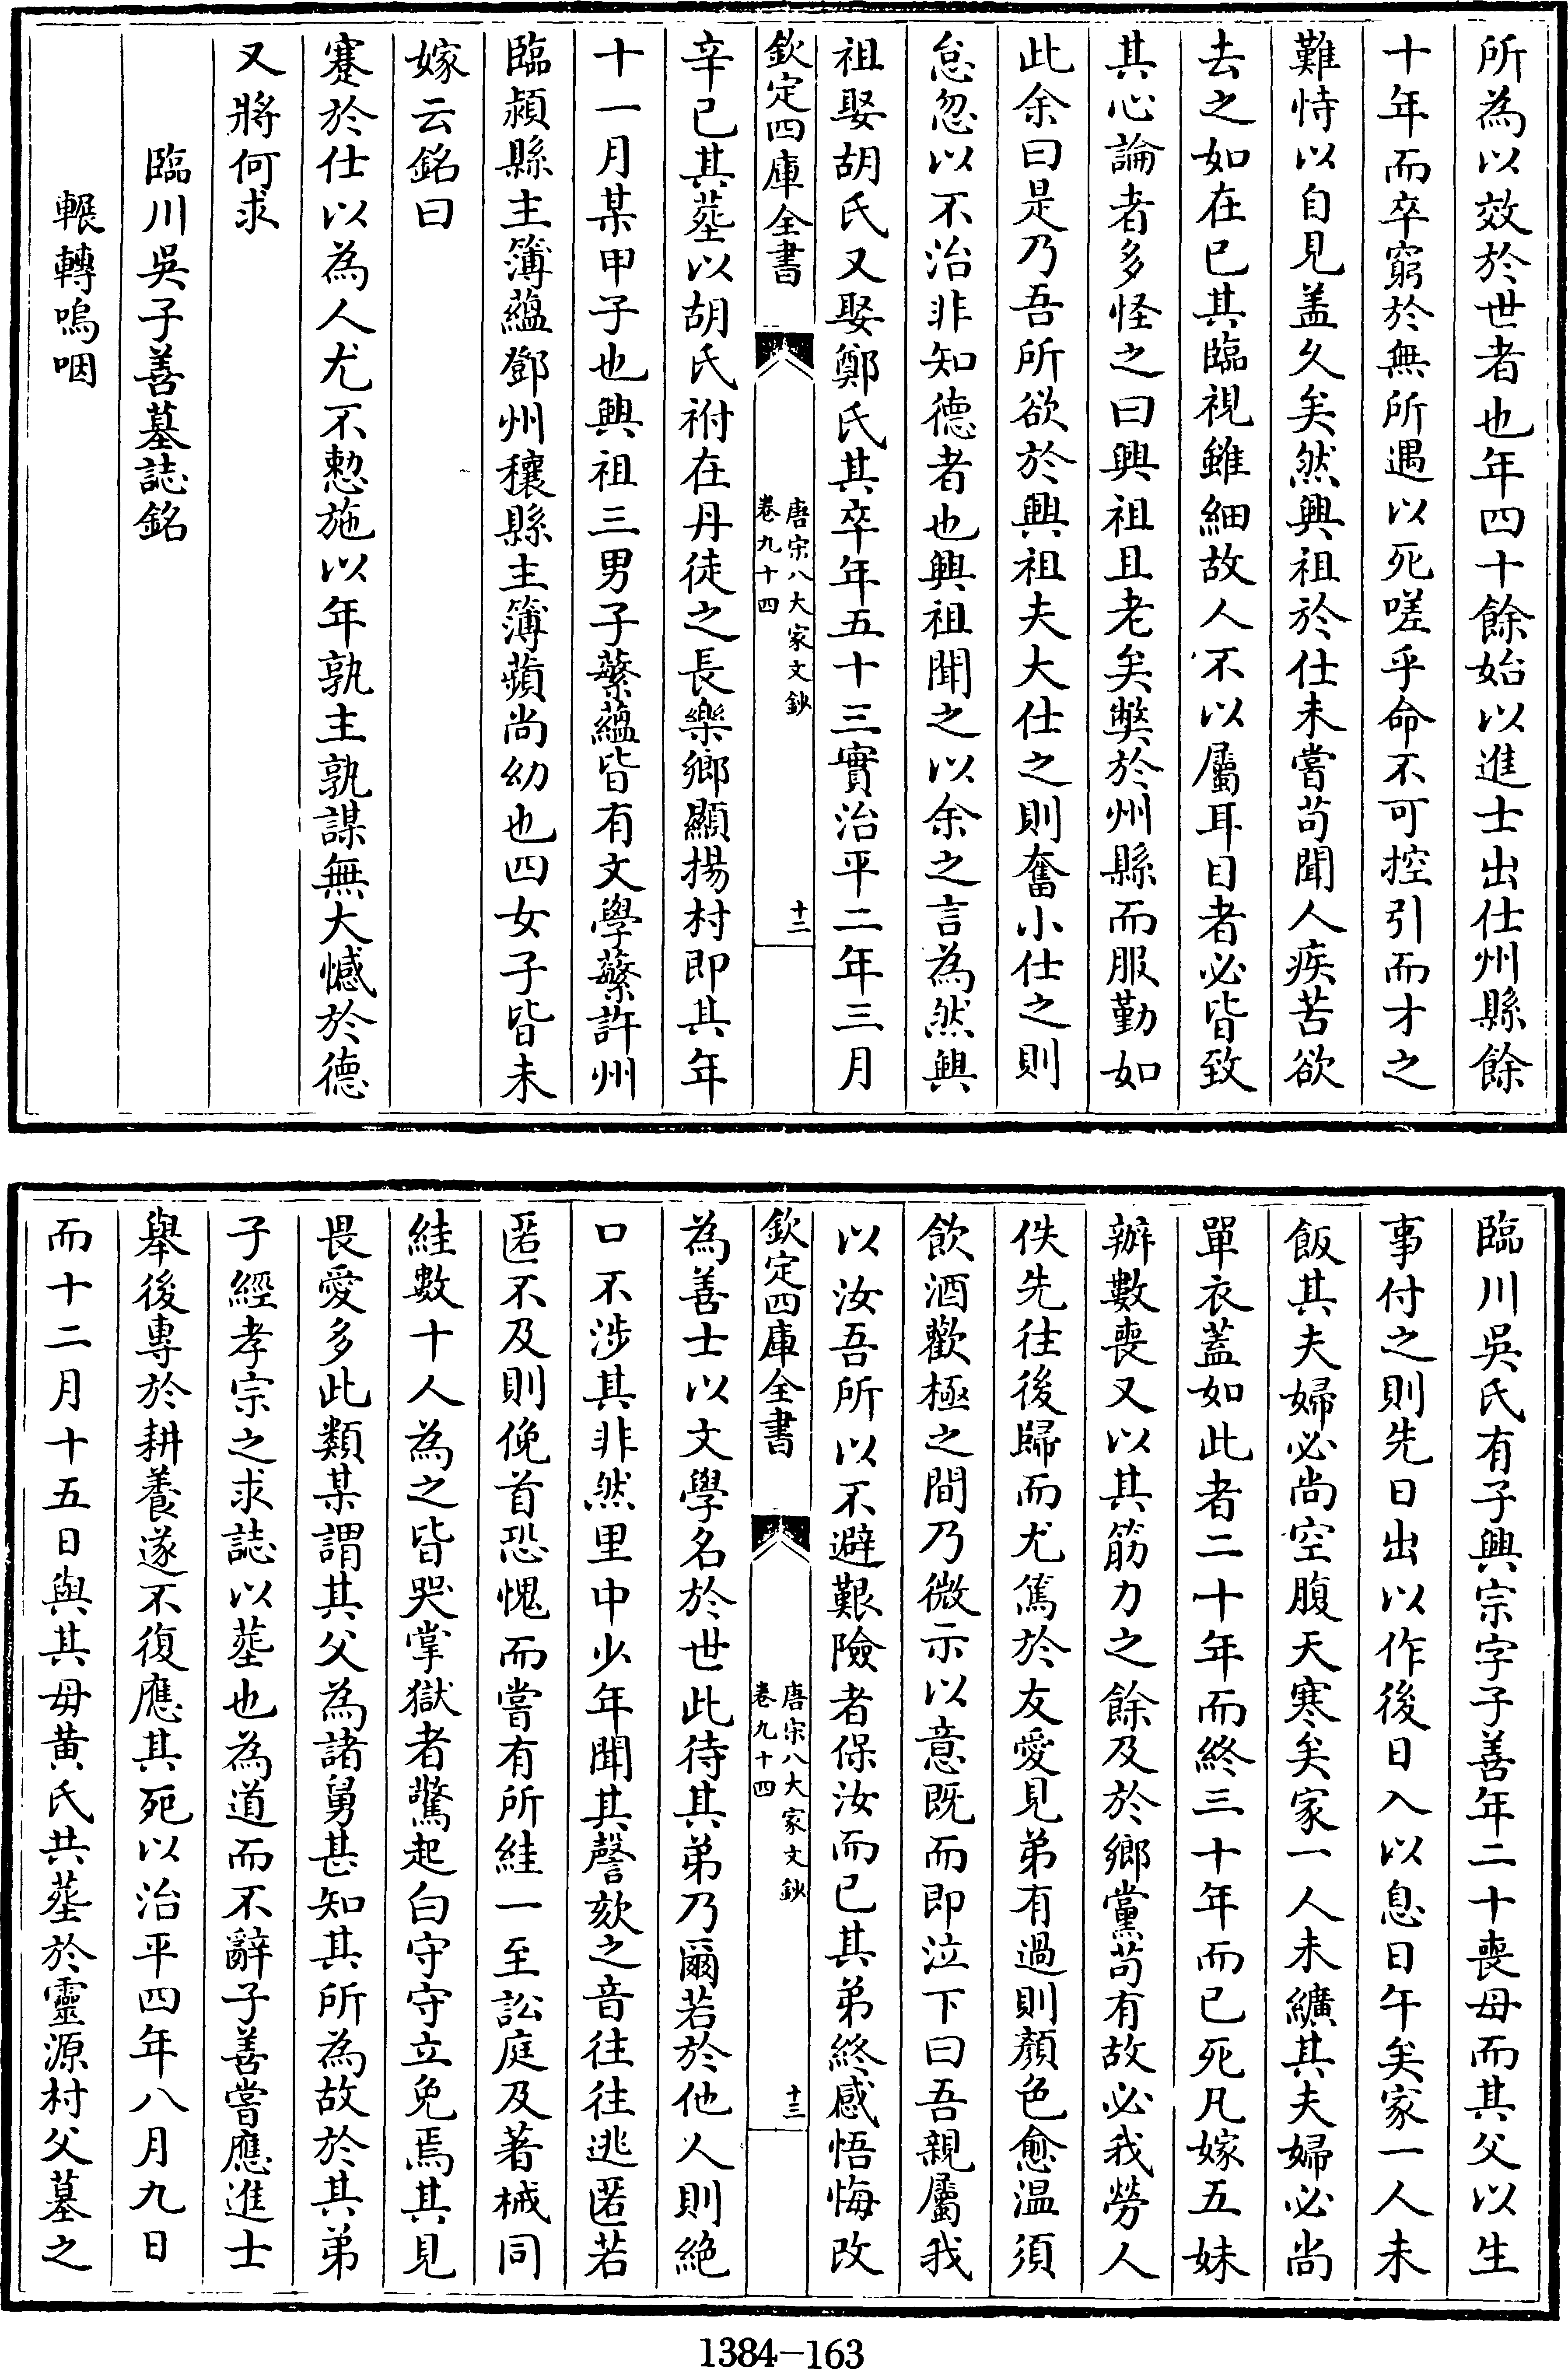 所為以效於世者也年四十餘始以進士出仕州縣餘
十年而卒窮於無所遇以死嗟乎命不可控引而才之
難恃以自見盖久矣然興祖於仕未嘗苟聞人疾苦欲
去之如在已其臨視雖細故人不以屬耳目者必皆致
其心論者多怪之曰興祖且老矣弊於州縣而服勤如
此余曰是乃吾所欲於興祖夫大仕之則奮小仕之則
怠忽以不治非知德者也興祖聞之以余之言為然興
祖娶胡氏又娶鄭氏其卒年五十三實治平二年三月
欽定四庫全書
唐宋八大家文鈔
卷九十四
十二
辛已其塟以胡氏祔在丹徒之長樂鄉顯揚村即其年
十一月某甲子也興祖三男子蘩蘊皆有文學蘩許州
臨潁縣主簿蘊鄧州穰縣主簿蘋尚幼也四女子皆未
嫁云銘曰
蹇於仕以為人尤不憗施以年孰主孰謀無大憾於德
又將何求
臨川吳子善墓誌銘
輾轉嗚咽
臨川吳氏有子興宗字子善年二十喪母而其父以生
事付之則先日出以作後日入以息日午矣家一人未
飯其夫婦必尚空腹天寒矣家一人未纊其夫婦必尚
單衣蓋如此者二十年而終三十年而已死凡嫁五妹
辦數喪又以其筋力之餘及於鄉黨苟有故必我勞人
佚先往後歸而尤篤於友愛見弟有過則顏色愈温須
飲酒歡極之間乃微示以意既而即泣下曰吾親屬我
以汝吾所以不避艱險者保汝而已其弟終感悟悔改
欽定四庫全書
唐宋八大家文鈔
卷九十四
十三
為善士以文學名於世此待其弟乃爾若於他人則絶
口不涉其非然里中少年聞其謦欬之音往往逃匿若
匿不及則俛首恐愧而嘗有所絓一至訟庭及著械同
絓數十人為之皆哭掌獄者驚起白守守立免焉其見
畏愛多此類某謂其父為諸舅甚知其所為故於其弟
子經孝宗之求誌以塟也為道而不辭子善嘗應進士
舉後專於耕養遂不復應其死以治平四年八月九日
而十二月十五日與其母黄氏共塟於靈源村父墓之
1384-163